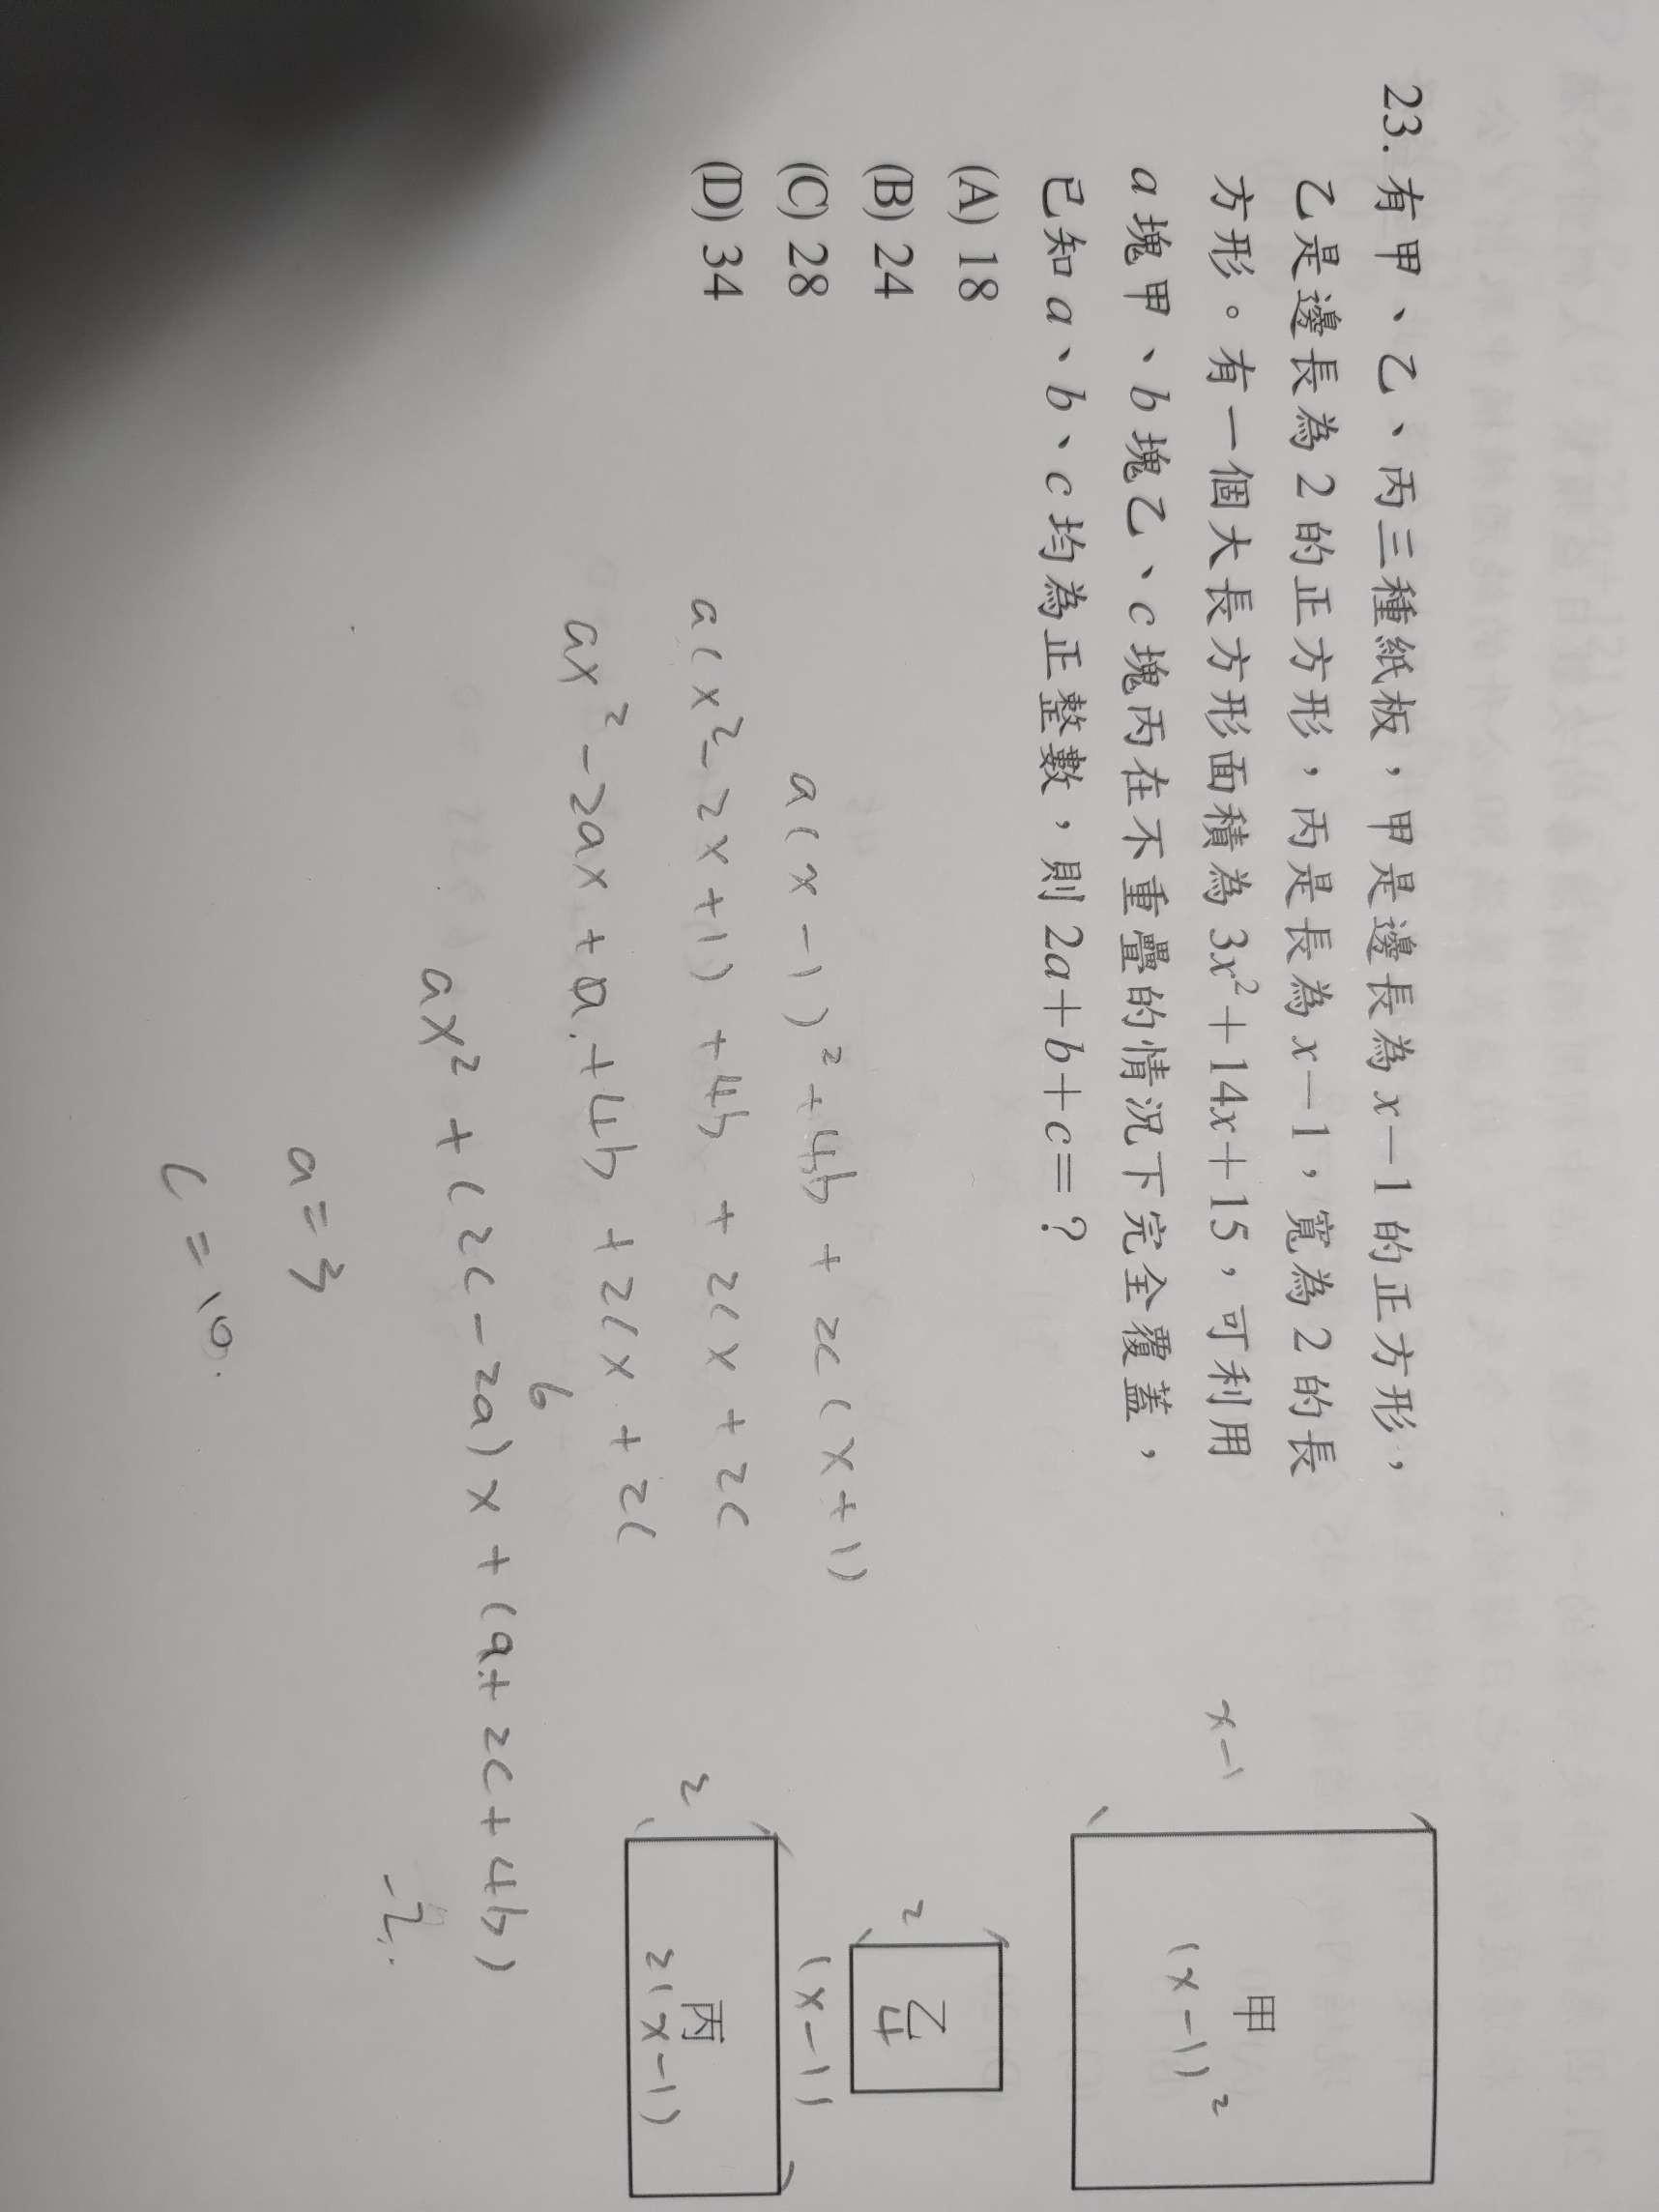 23. 有甲、乙、丙三種紙板，甲是邊長為 x－1 的正方形，
乙是邊長為 2 的正方形，丙是長為 x－1，寬為 2 的長
方形。有一個大長方形面積為 3x²＋14x＋15，可利用
a 塊甲、b 塊乙、c 塊丙在不重疊的情況下完全覆蓋，
已知 a、b、c 均為正整數，則 2a＋b＋c＝？
(A) 18
(B) 24
(C) 28
(D) 34
a(x-1)²+4b+2c(x+1)
a(x²-2x+1)+4b+2cx+2c
ax²-2ax+a+4b+2cx+2c
6
ax²+(2c-2a)x+(a+2c+4b)
a=3
c=10
x-1
甲
(x-1)²
2
乙
4
(x-1)
2
丙
2(x-1)